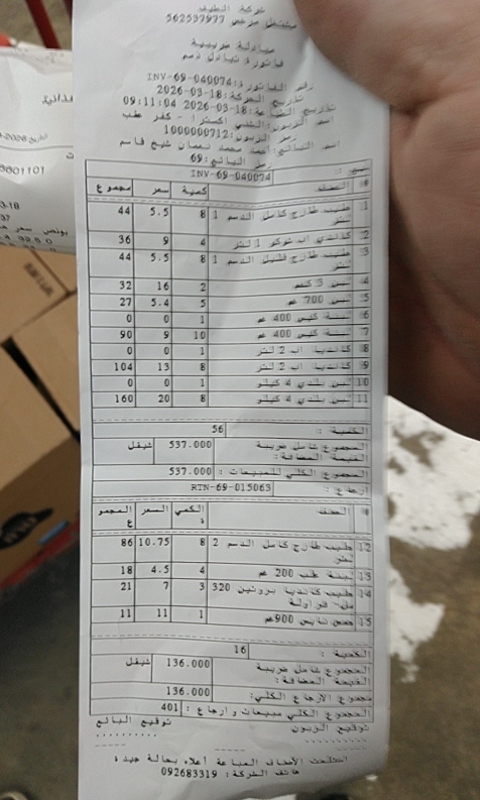 شركة الطيف
مشتغل مرخص 562537977
مبادلة ضريبية
فاتورة تبادل ذمم
رقم الفاتورة: INV-69-040074
تاريخ الحركة: 2026-03-18
تاريخ الطباعة: 2026-03-18 09:11:04
اسم الزبون: الشني اكسترا - كفر عقب
رقم الزبون: 1000000712
اسم البائع: احمد محمد نعمان شيخ قاسم
رمز البائع: 69
INV-69-040074
# الصنف كمية سعر مجموع
1 حليب طازج كامل الدسم 1 لتر 8 5.5 44
2 1 لتر 4 9 36
3 حليب طازج قليل الدسم 1 لتر 8 5.5 44
4 لبن 3 كغم 2 16 32
5 لبن 700 غم 5 5.4 27
6 لبنة كيس 400 غم 1 0 0
7 لبنة كيس 400 غم 10 9 90
8 كانديا اب 2 لتر 1 0 0
9 كانديا اب 2 لتر 8 13 104
10 لبن بلدي 4 كيلو 1 0 0
11 لبن بلدي 4 كيلو 8 20 160
الكمية : 56
المجموع شامل ضريبة القيمة المضافة: 537.000 شيقل
المجموع الكلي للمبيعات : 537.000
ارجاع : RTN-69-015063
# الصنف الكمية السعر المجموع
12 حليب طازج كامل الدسم 2 لتر 8 10.75 86
13 لبنة علب 200 غم 4 4.5 18
14 حليب كانديا بروتين 320 مل- فراولة 3 7 21
15 حمص نابس 900غم 1 11 11
الكمية : 16
المجموع شامل ضريبة القيمة المضافة: 136.000 شيقل
مجموع الارجاع الكلي: 136.000
المجموع الكلي مبيعات وارجاع : 401
توقيع الزبون توقيع البائع
استلمت الأصناف المباعة أعلاه بحالة جيدة
هاتف الشركة: 092683319